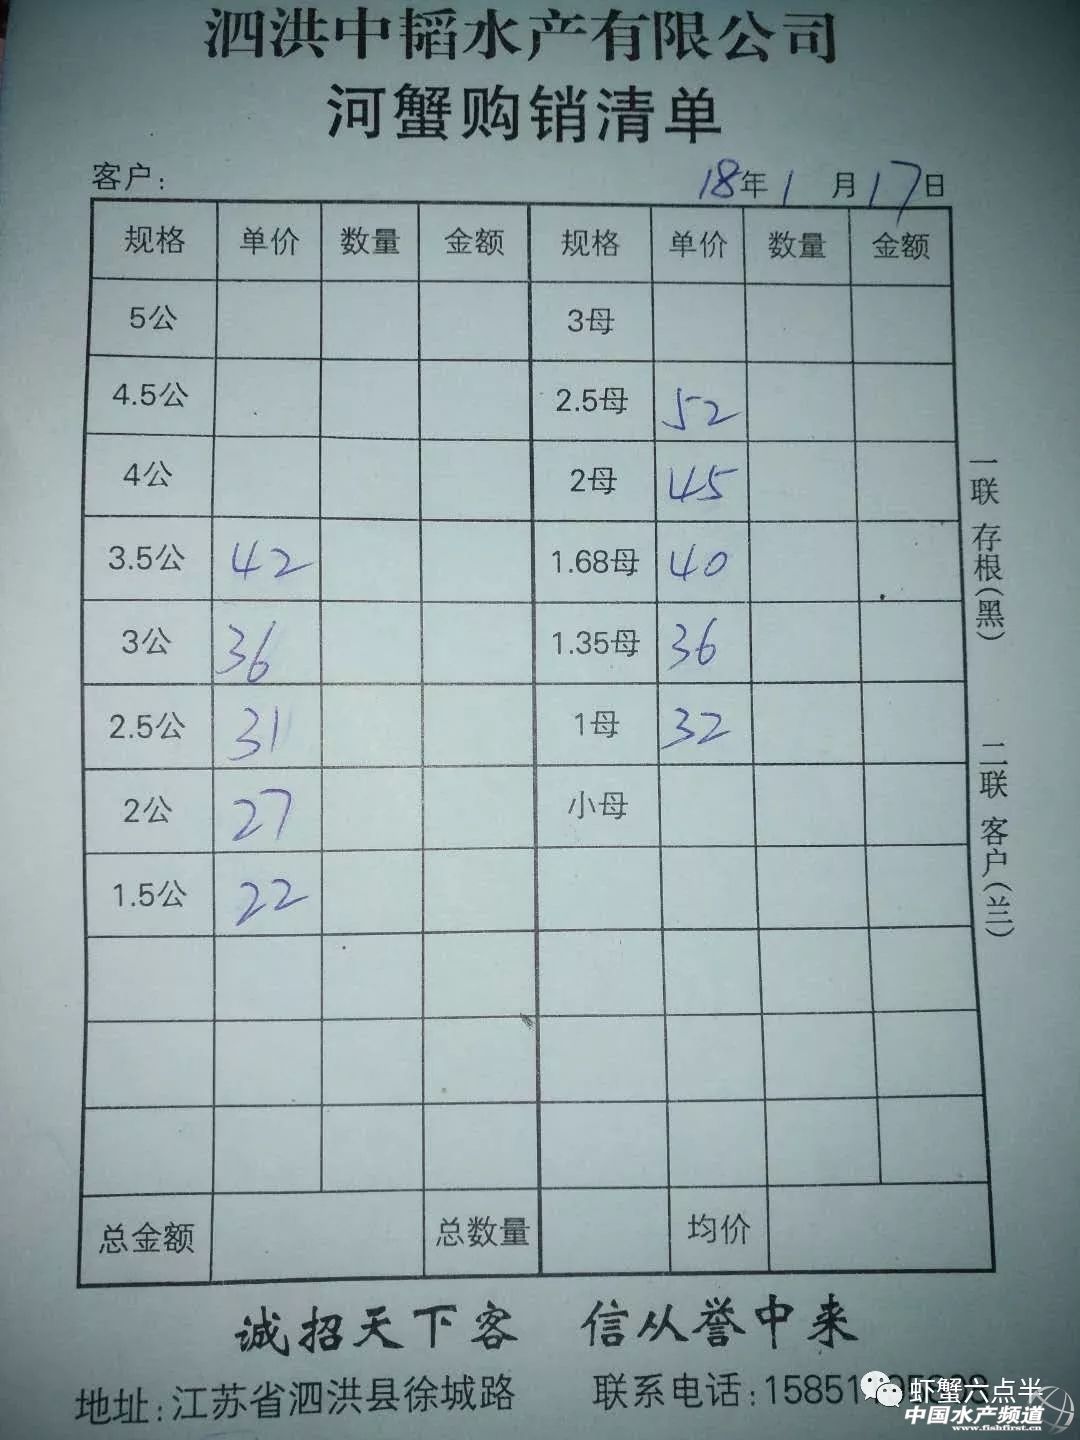 泗洪中韬水产有限公司
河蟹购销清单
客户: 18年1月17日
规格 单价 数量 金额 规格 单价 数量 金额
5公 3母
4.5公 2.5母 52
4公 2母 45
3.5公 42 1.68母 40
3公 36 1.35母 36
2.5公 31 1母 32
2公 27 小母
1.5公 22
总金额 总数量 均价
一联 存根(黑)
二联 客户(兰)
诚招天下客 信从誉中来
地址:江苏省泗洪县徐城路 联系电话:15851
虾蟹六点半
中国水产频道
www.fishfirst.cn